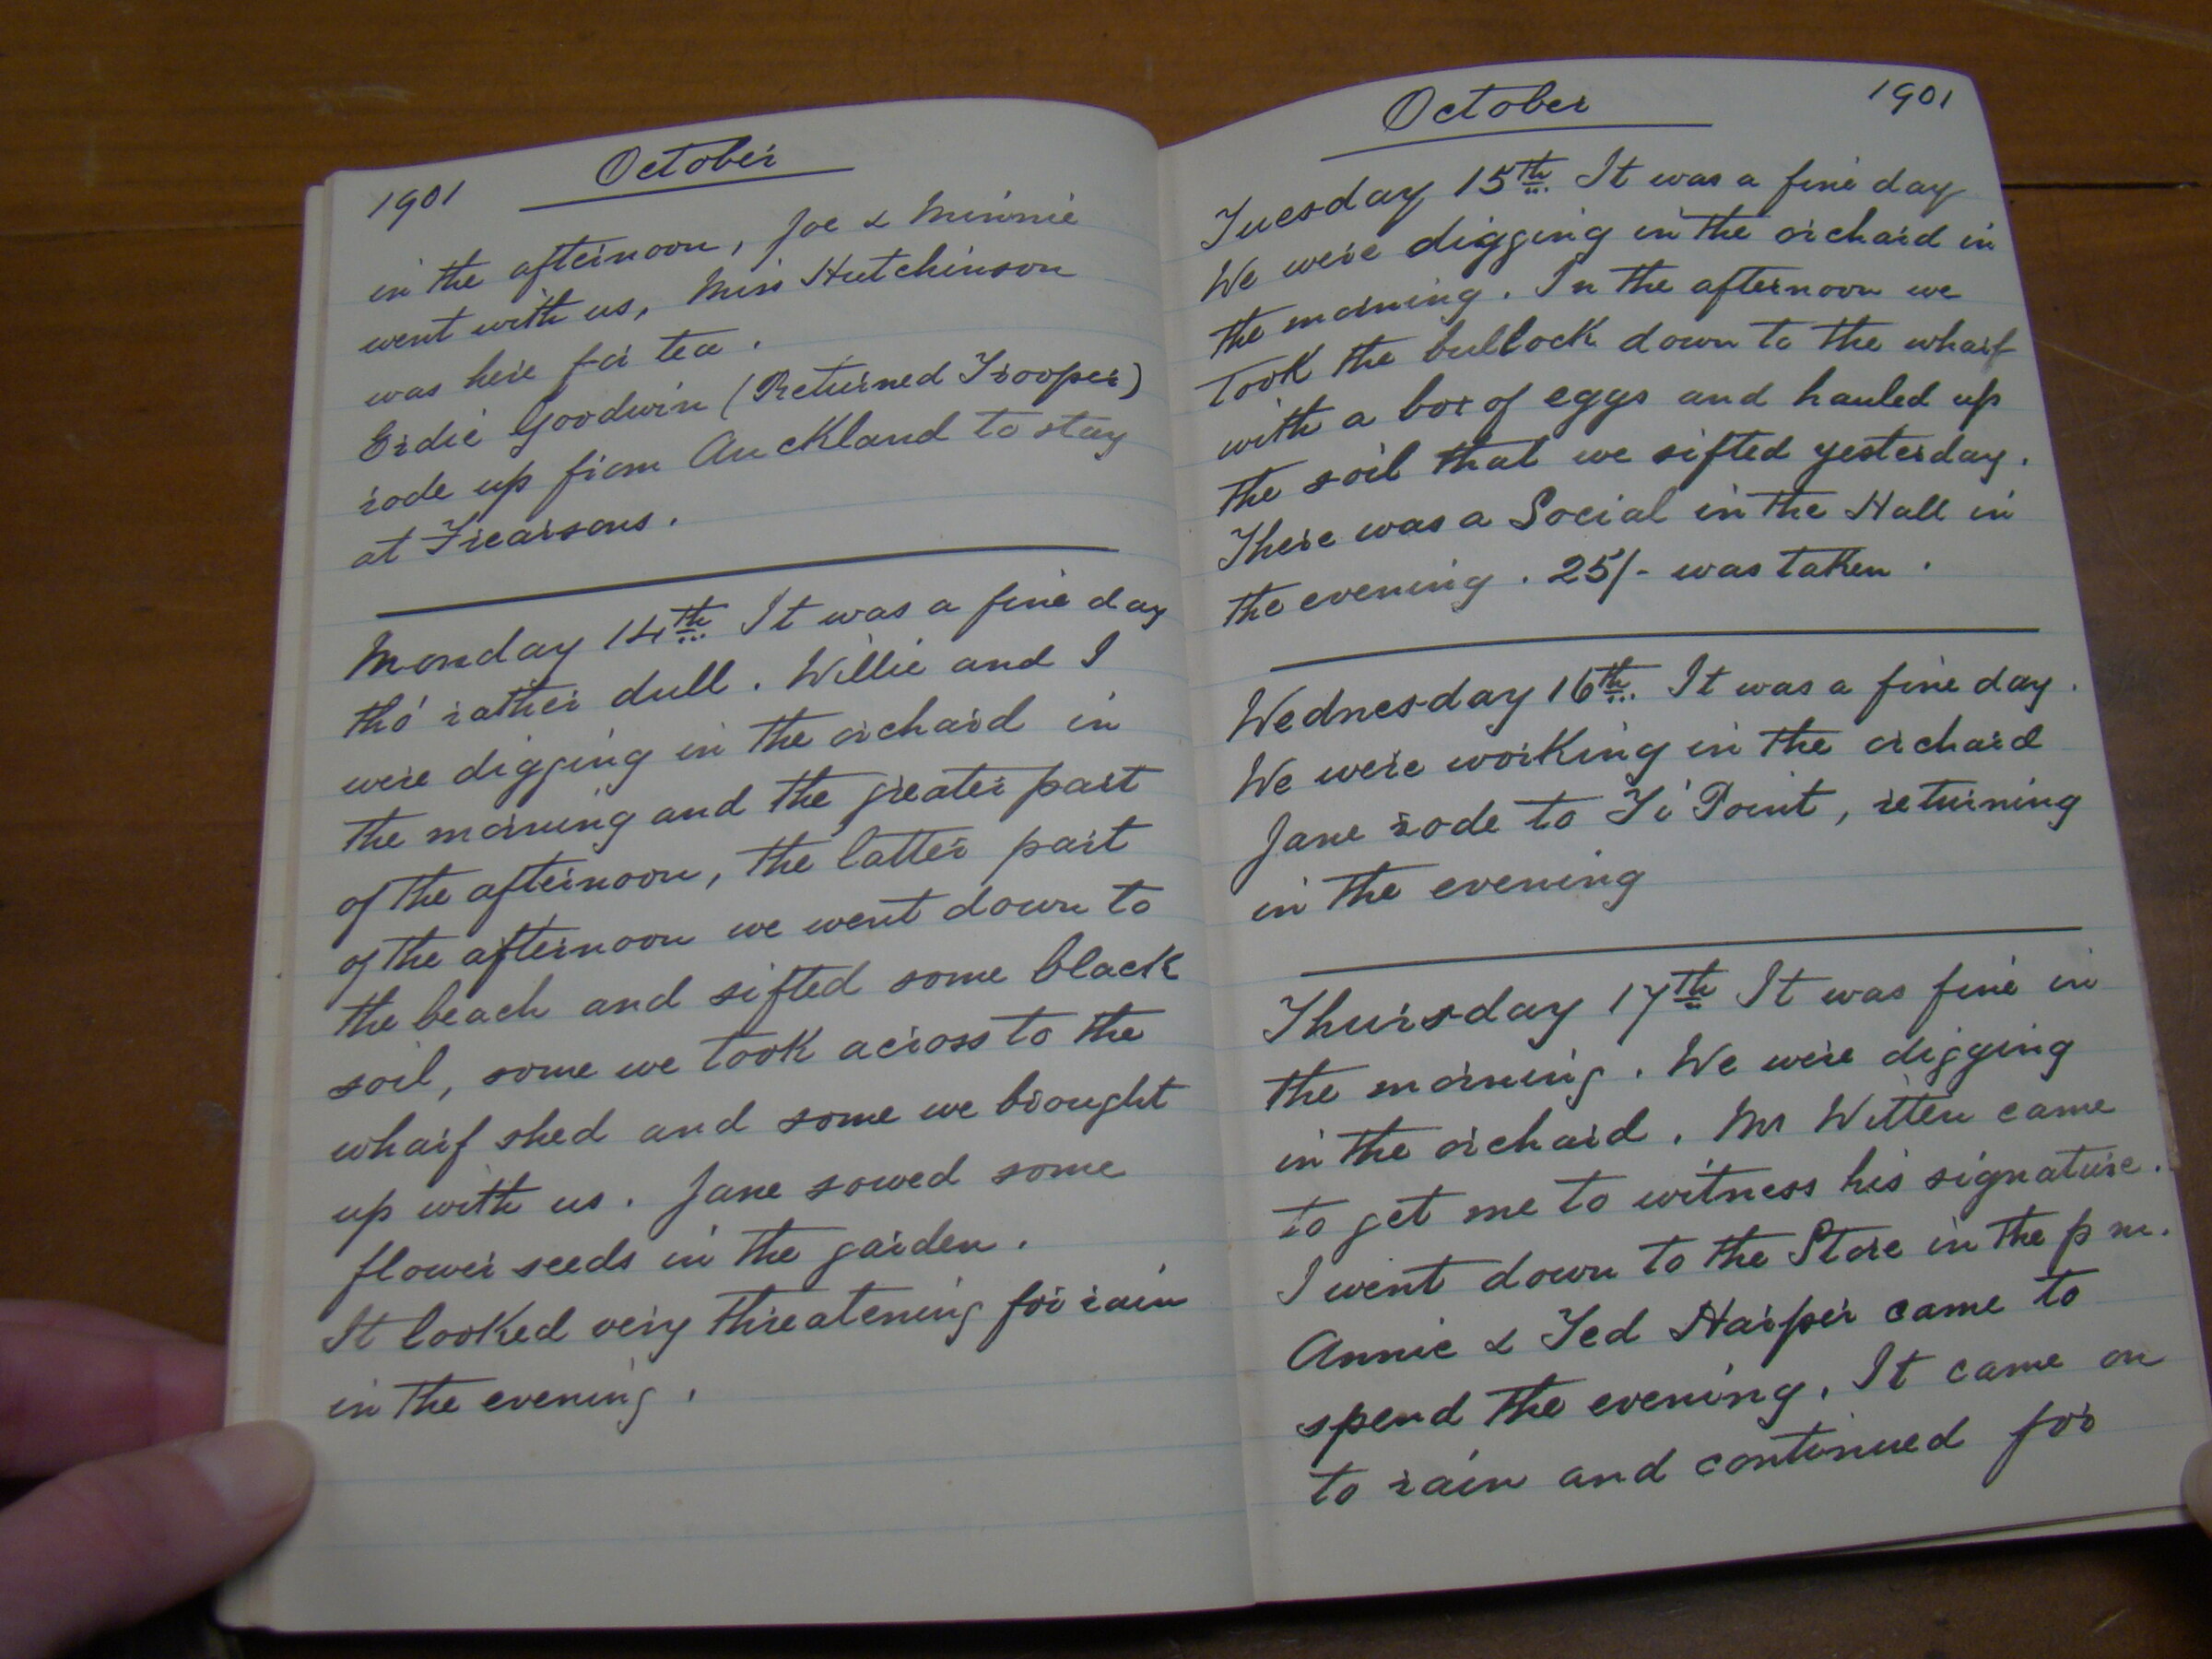 1901 October
in the afternoon, Joe & Minnie
went with us, Miss Hutchinson
was here for tea.
Erdie Goodwin (Returned Trooper)
rode up from Auckland to stay
at Frearsons.
Monday 14th It was a fine day
tho' rather dull. Willie and I
were digging in the orchard in
the morning and the greater part
of the afternoon, the latter part
of the afternoon we went down to
the beach and sifted some black
soil, some we took across to the
wharf shed and some we brought
up with us. Jane sowed some
flower seeds in the garden.
It looked very threatening for rain
in the evening.
October 1901
Tuesday 15th It was a fine day
We were digging in the orchard in
the morning. In the afternoon we
took the bullock down to the wharf
with a box of eggs and hauled up
the soil that we sifted yesterday.
There was a Social in the Hall in
the evening. 25/- was taken.
Wednesday 16th It was a fine day.
We were working in the orchard
Jane rode to Ti Point, returning
in the evening
Thursday 17th It was fine in
the morning. We were digging
in the orchard. Mr Witten came
to get me to witness his signature.
I went down to the Store in the p m.
Annie & Ted Harper came to
spend the evening. It came on
to rain and continued for